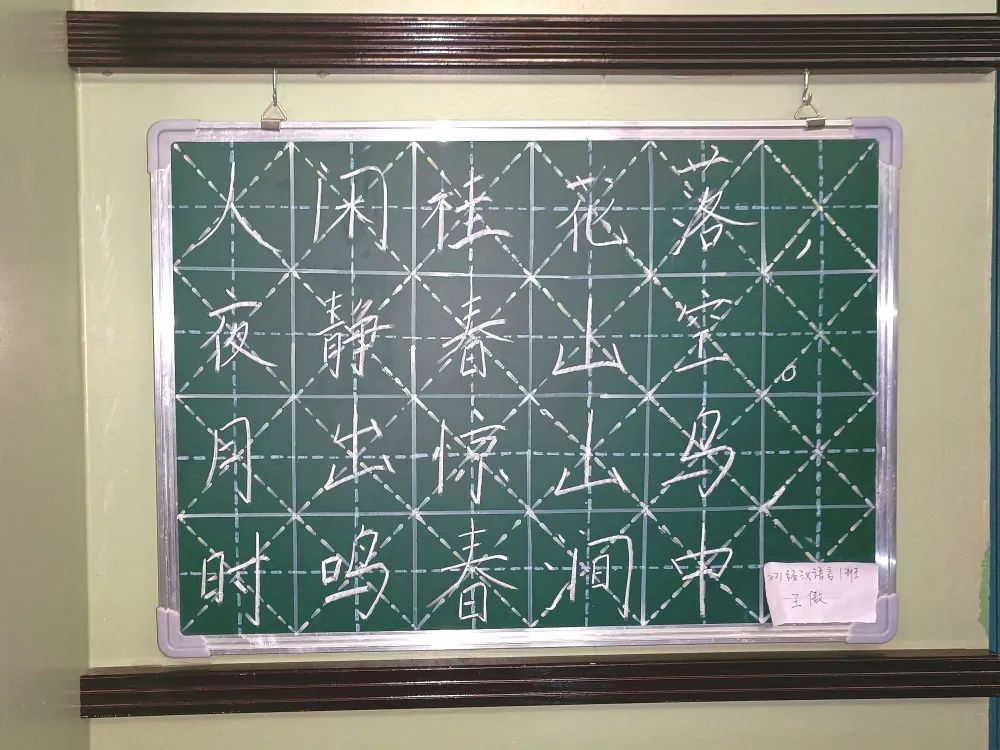 人闲桂花落，
夜静春山空。
月出惊山鸟
时鸣春涧中
2021级汉语言1班
王傲